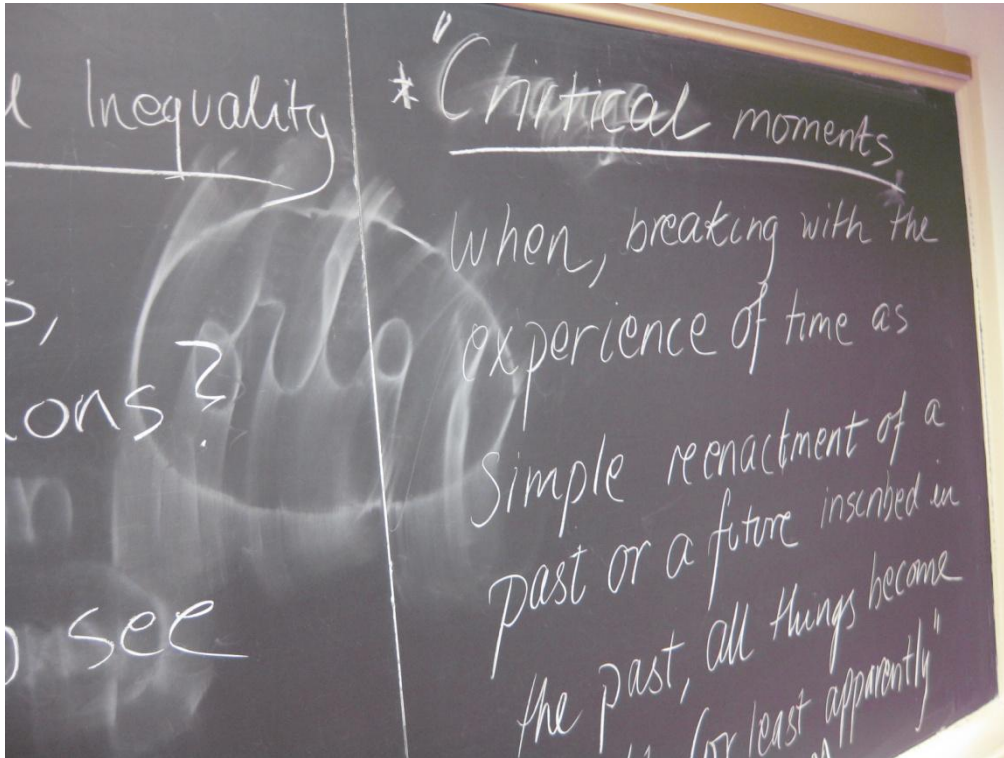 Inequality
s,
ons?
see
* "Chritical moments
when, breaking with the
experience of time as
simple reenactment of a
past or a future inscribed in
the past, all things become
(or least apparently"